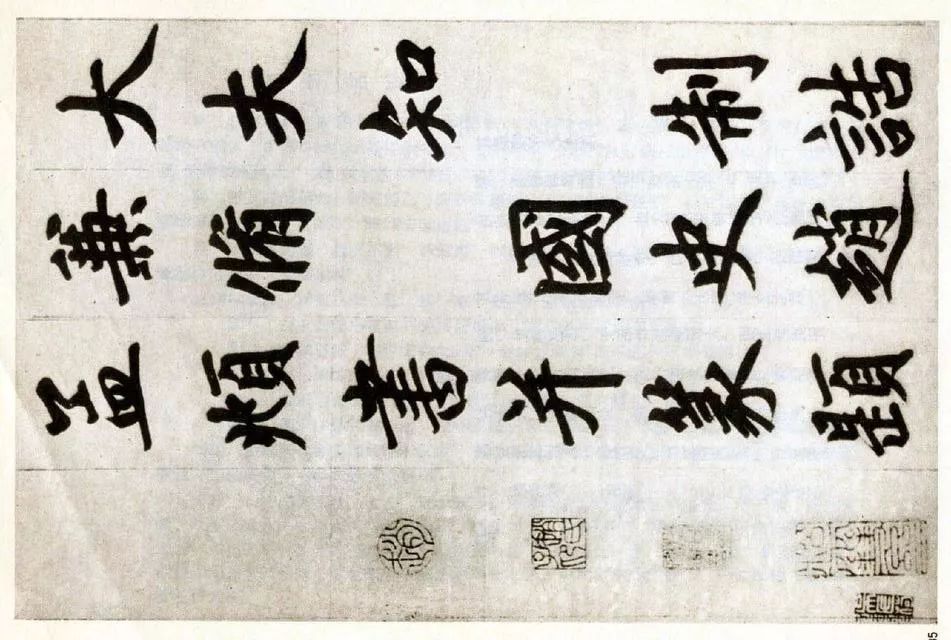 大夫知 制誥
兼脩 國史趙
孟頫書并篆額